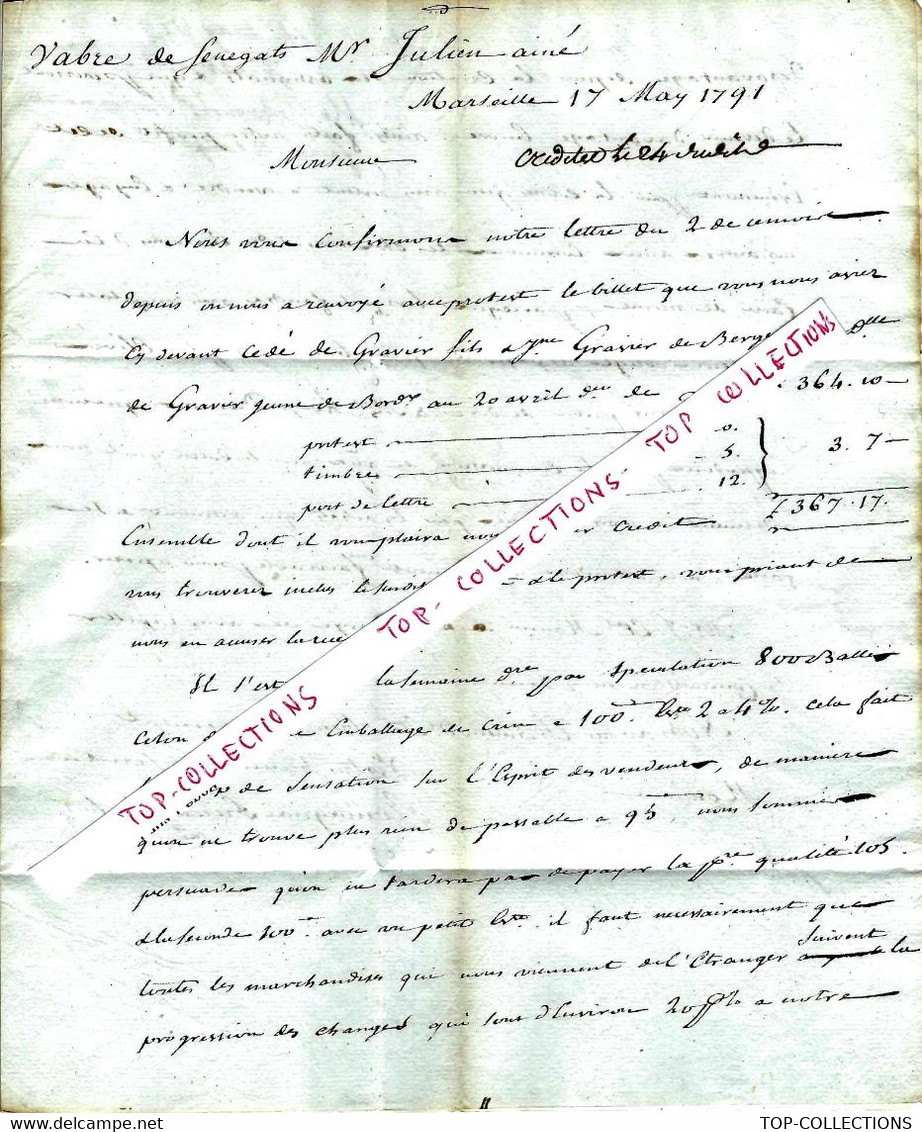 Vabre de Senegats Mr. Julien ainé
Marseille 17 May 1791
Monsieur
credité le 24
Nous vous Confirmons notre lettre du 2 de ce mois
depuis on nous a renvoyé avec protest le billet que vous nous aviez
Cy devant Cedé de Gravier fils & Jne Gravier de Berge
de Gravier jeune de Bordx au 20 avril der de 364.10
protest 0.
timbre 5. 3. 7
port de lettre 12.
£ 367.17.
Ensemble dont il vous plaira nous er credit
vous trouverez inclus & le protest, vous priant de
nous en accuser la rec
Il s'est la semaine dre par Speculation 800 Balles
Coton Emballage de Crin a 100 2 a 4%. cela fait
de Sensation sur l'Esprit des vendeurs, de maniere
qu'on ne trouve plus rien de passable a 95 nous sommes
persuadés qu'on ne tardera pas de payer la pre qualité 105.
& la seconde 100 avec un petit il faut necessairement que
toutes les marchandises qui nous viennent de l'Etranger suivent la
progression des changes qui sont d'Environ 20 a notre
TOP-COLLECTIONS TOP-COLLECTIONS TOP COLLECTIONS
TOP-COLLECTIONS